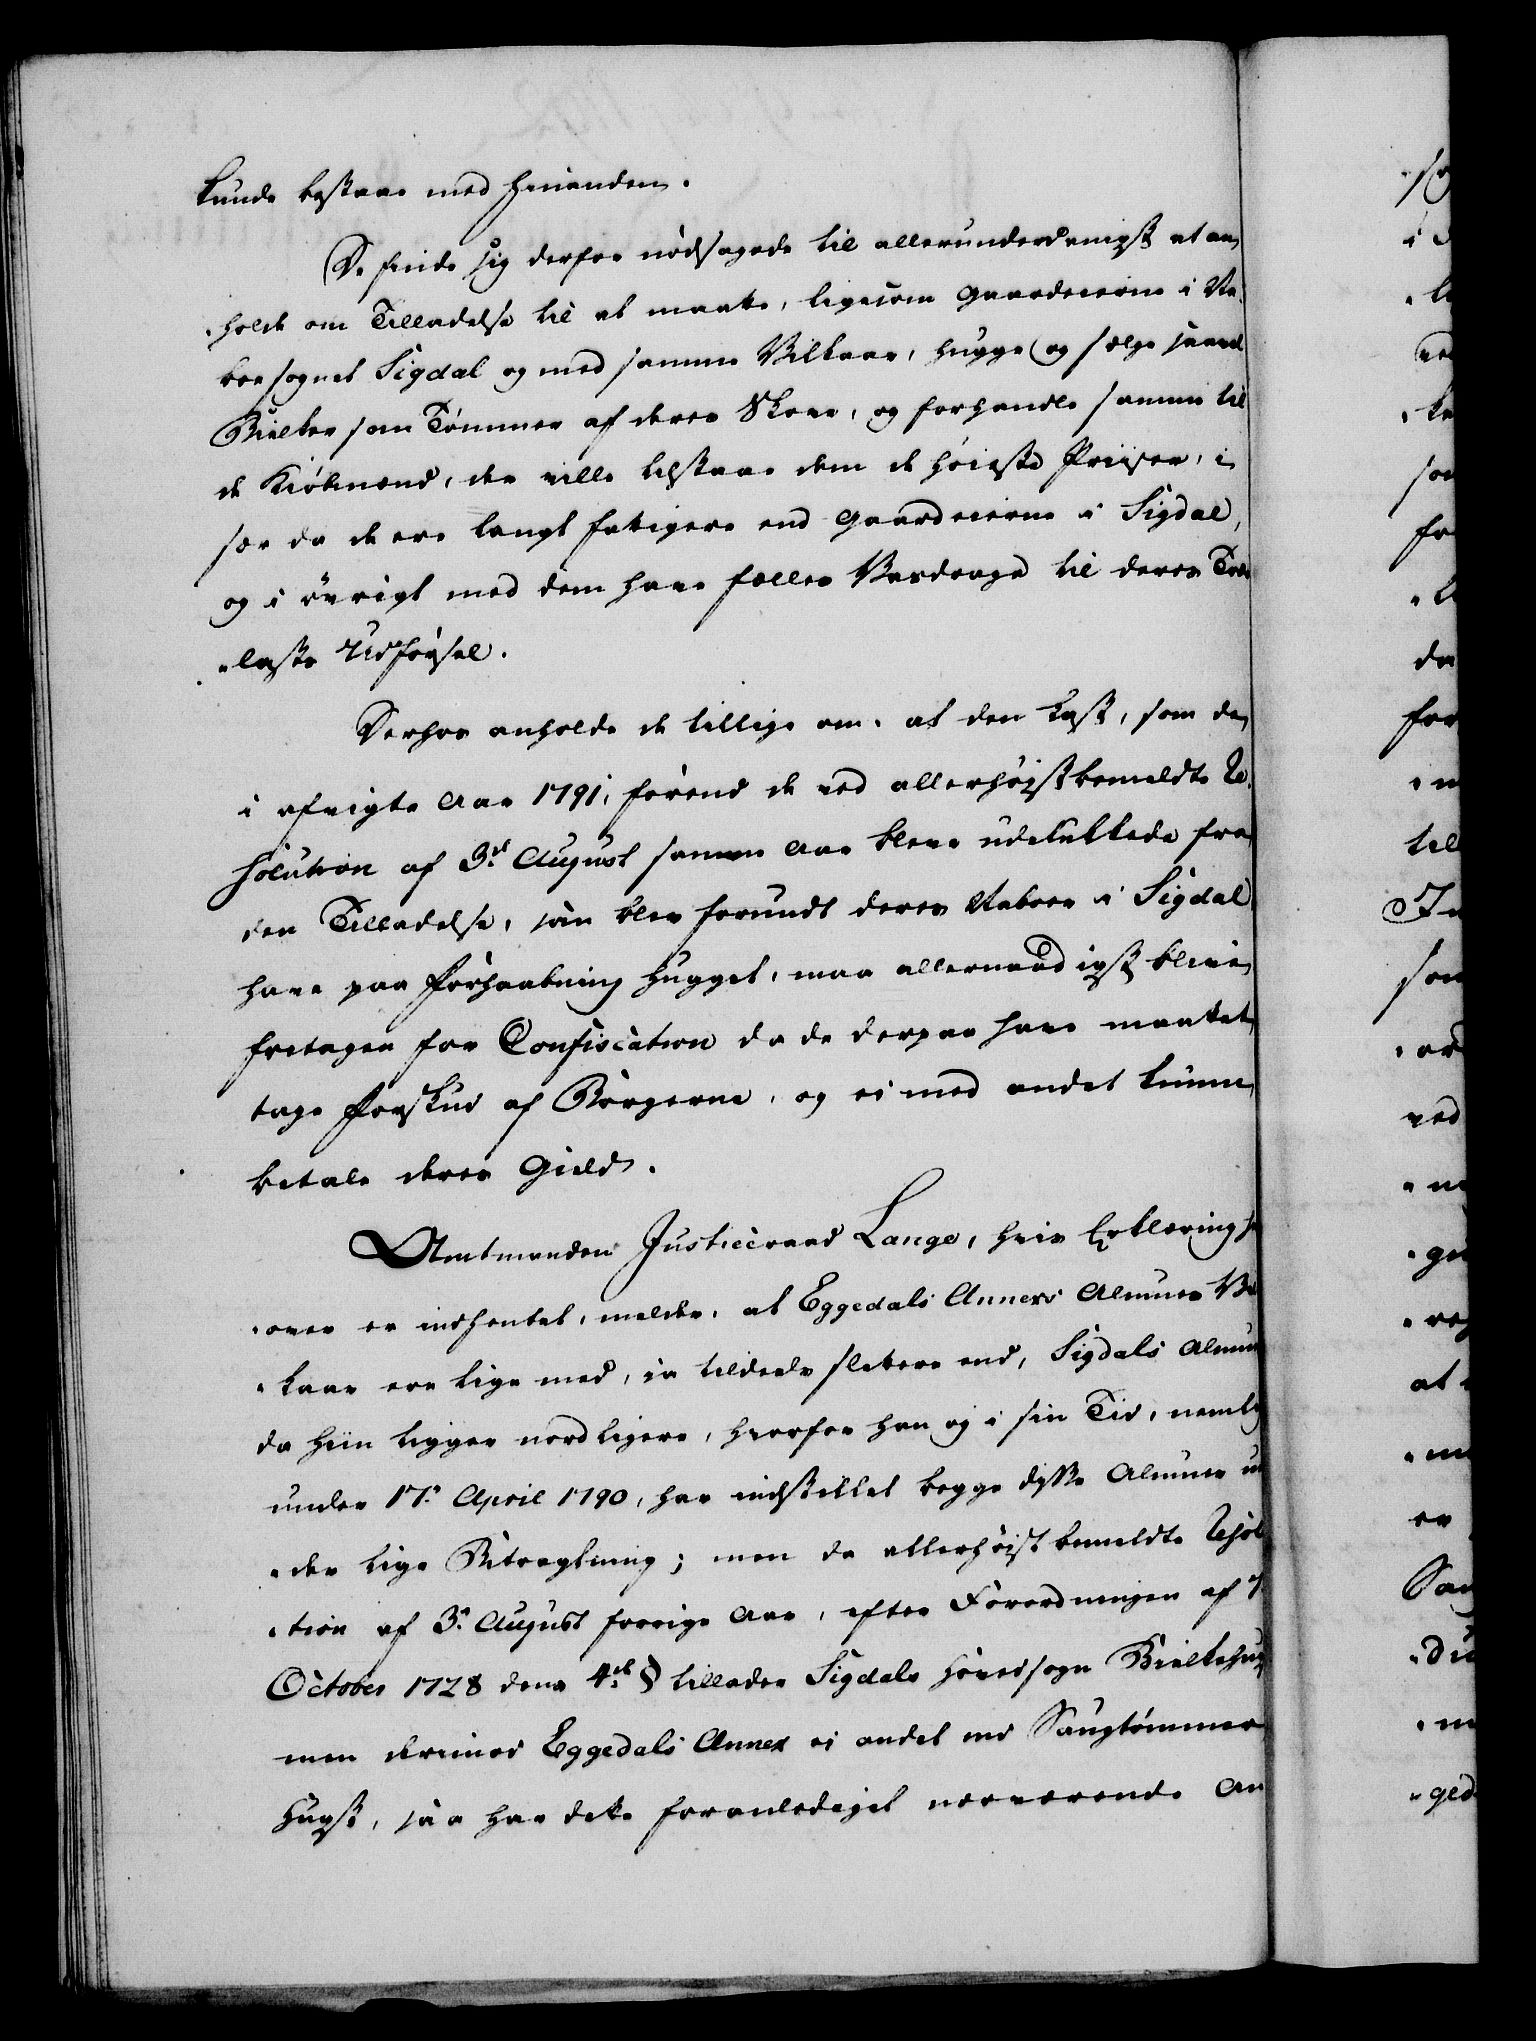 kunde bestaae med hinanden.
De finde sig derfor nødsagede til allerunderdanigst at an-
holde om Tilladelse til at maatte, ligesom Gaardeierne i Na-
boesognet Sigdal og med samme Vilkaar, hugge og sælge saavel
Bielker som Tømmer af deres Skove, og forhandle samme til
de Kiøbmænd, der ville tilstaae dem de høieste Priiser, i
sær da de ere langt fattigere end Gaardeierne i Sigdal,
og i øvrigt med dem have fælles Vasdrage til deres Træ-
lasts Udførsel.
Derhos anholde de tillige om, at den Last, som de
i afvigte Aar 1791, førend de ved allerhøistbemeldte Re-
solution af 3d August samme Aar bleve udelukkede fra
den Tilladelse, som blev forundt deres Naboer i Sigdal
have paa Forhaabning hugget, maa allernaadigst blive
fritagen for Confiscation da de derpaa have maattet
tage Forskud af Borgerne, og ei med andet kunne
betale deres Gield.
Amtmanden Justiceraad Lange, hvis Erklæring her
over er indhentet, melder, at Eggedals Annexes Almues Vil-
kaar ere lige med, ia tildeels slettere end, Sigdals Almues
da hiin ligger nordligere, hvorfor han og i sin Tid, nemlig
under 17. April 1790, har indstillet begge disse Almuer un-
der lige Betragtning; men da allerhøistbemeldte Resolu-
tion af 3. August forrige Aar, efter Forordningen af 7.
October 1728 dens 4de § tillader Sigdals Hovedsogn Bielkehugst
men derimod Eggedals Annex ei andet end Saugtømmer
Hugst, saa har dette foranlediget nærværende An